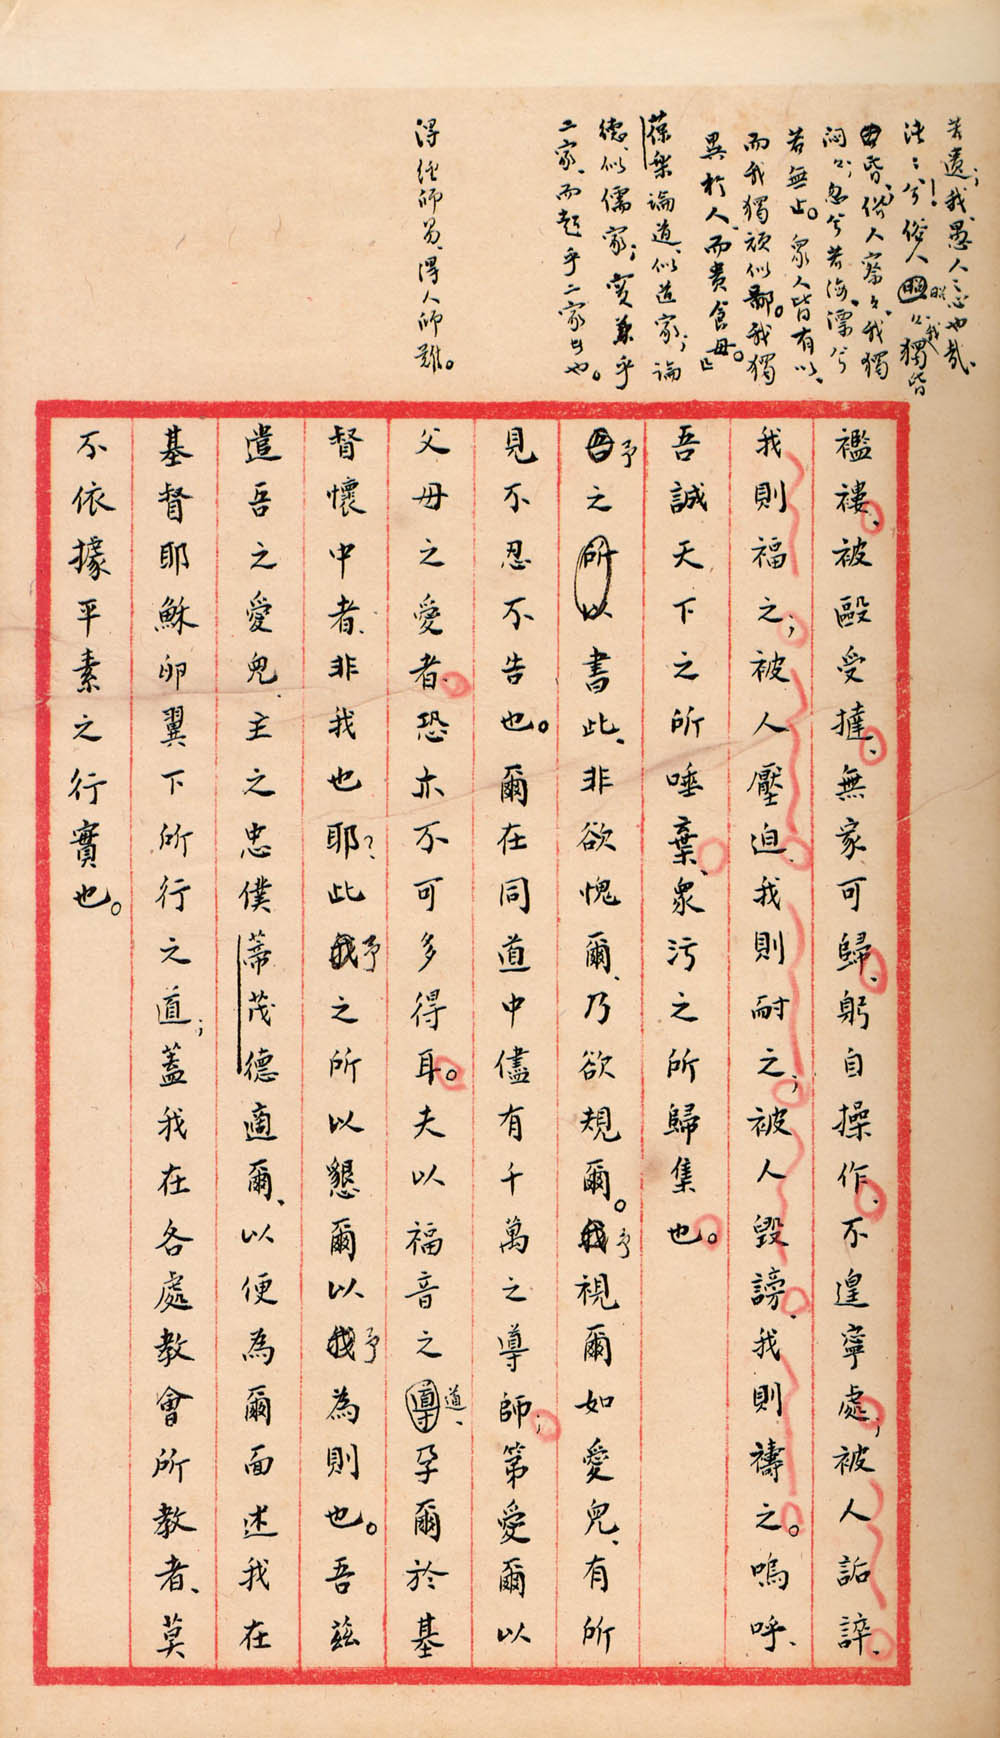 若遺;我愚人之心也哉、
沌々兮!俗人昭々、我獨若
昏;俗人察々、我獨
悶々;忽兮若海、漂兮
若無止。眾人皆有以、
而我獨頑似鄙。我獨
異於人、而貴食母。」
葆樂論道、似道家;論
德、似儒家;實兼乎
二家、而超乎二家者也。
得經師易、得人師難。
襤褸、被毆受撻、無家可歸、躬自操作、不遑寧處;被人詬誶、
我則福之;被人壓迫、我則耐之;被人毀謗、我則禱之。嗚呼、
吾誠天下之所唾棄、眾污之所歸集也。
予之所以書此、非欲愧爾、乃欲規爾。予視爾如愛兒、有所
見不忍不告也。爾在同道中儘有千萬之導師;第愛爾以
父母之愛者、恐亦不可多得耳。夫以福音之道、孕爾於基
督懷中者、非我也耶?此予之所以懇爾以予為則也。吾茲
遣吾之愛兒、主之忠僕蒂茂德適爾、以便為爾面述我在
基督耶穌卵翼下所行之道;蓋我在各處教會所教者、莫
不依據平素之行實也。